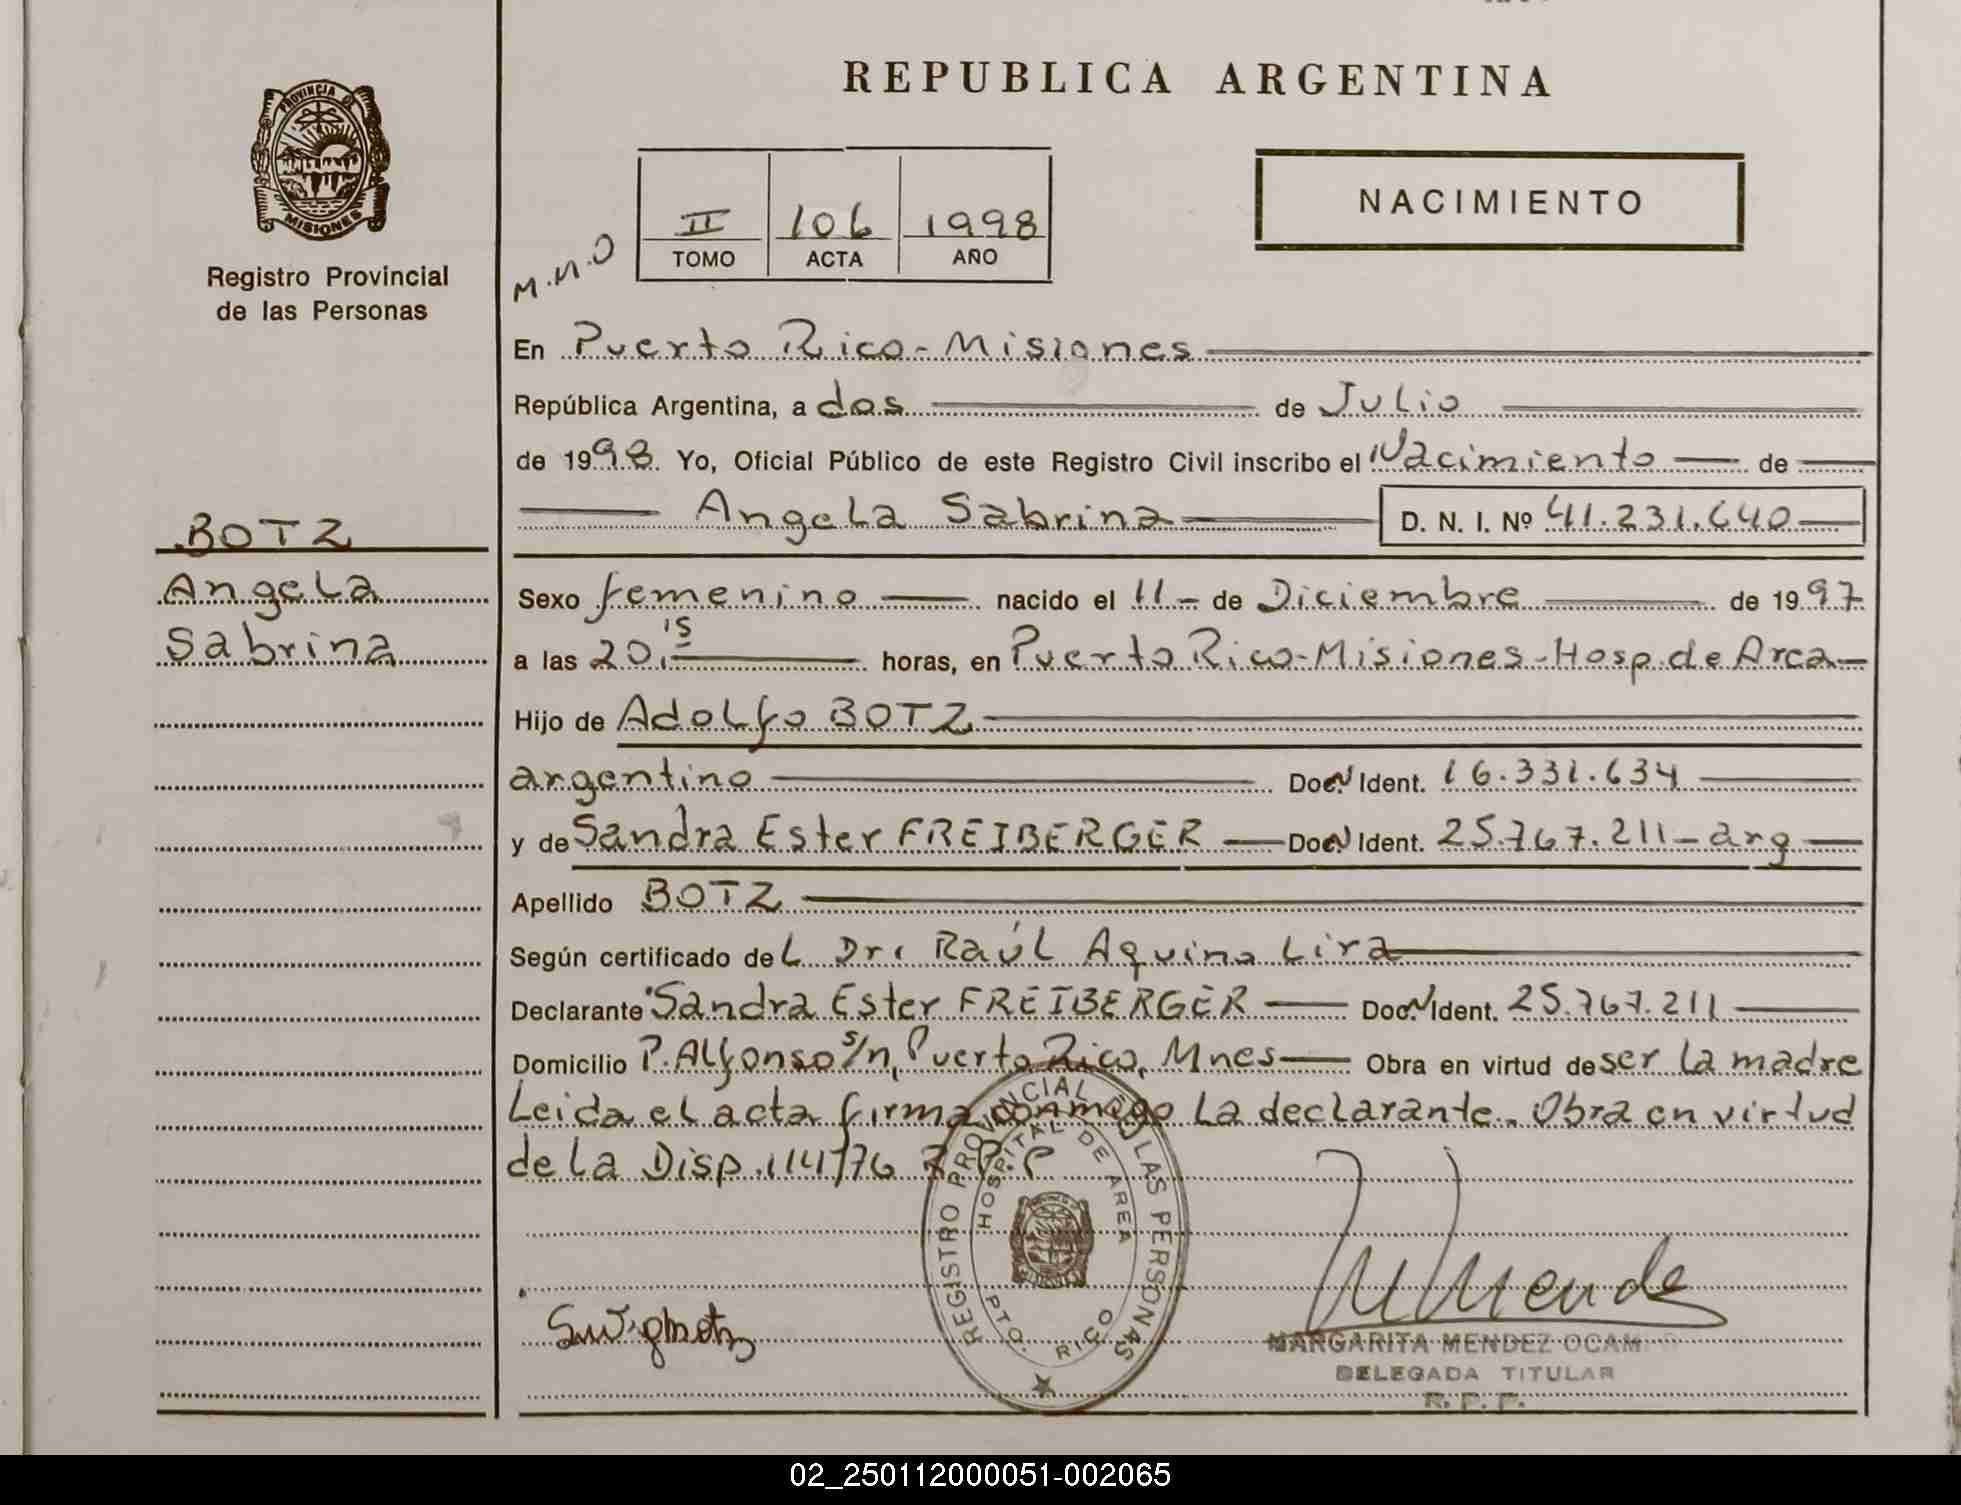 REPUBLICA ARGENTINA
PROVINCIA DE
MISIONES
Registro Provincial
de las Personas
M.M.O
II 106 1998
TOMO ACTA AÑO
NACIMIENTO
En Puerto Rico - Misiones
República Argentina, a dos de Julio
de 1998. Yo, Oficial Público de este Registro Civil inscribo el Nacimiento de
Angela Sabrina D. N. I. Nº 41.231.640
BOTZ
Angela
Sabrina
Sexo femenino nacido el 11 - de Diciembre de 1997
a las 20,15 horas, en Puerto Rico - Misiones - Hosp. de Area
Hijo de Adolfo BOTZ
argentino Doc. N Ident. 16.331.634
y de Sandra Ester FREIBERGER Doc. N Ident. 25.767.211 - arg
Apellido BOTZ
Según certificado del Dr. Raúl Aquino Lira
Declarante Sandra Ester FREIBERGER Doc. N Ident. 25.767.211
Domicilio P. Alfonso s/n, Puerto Rico, Mnes Obra en virtud de ser la madre
Leida el acta firma conmigo la declarante. Obra en virtud
de la Disp. 114/76 R.P.P
REGISTRO PROVINCIAL DE LAS PERSONAS
HOSPITAL DE AREA
PTO. RICO
MARGARITA MENDEZ OCAMPO
DELEGADA TITULAR
R. P. P.
02_250112000051-002065